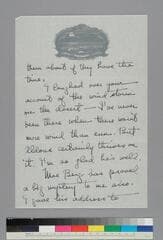 them about if they have the
time.
I laughed over your
account of the wind storm
on the desert — I've never
been there when there wasn't
more wind than even. But
illness certainly thrives on
it. I'm so glad he's well.
Mrs Berg has proved
a big mystery to me also.
I gave his address to